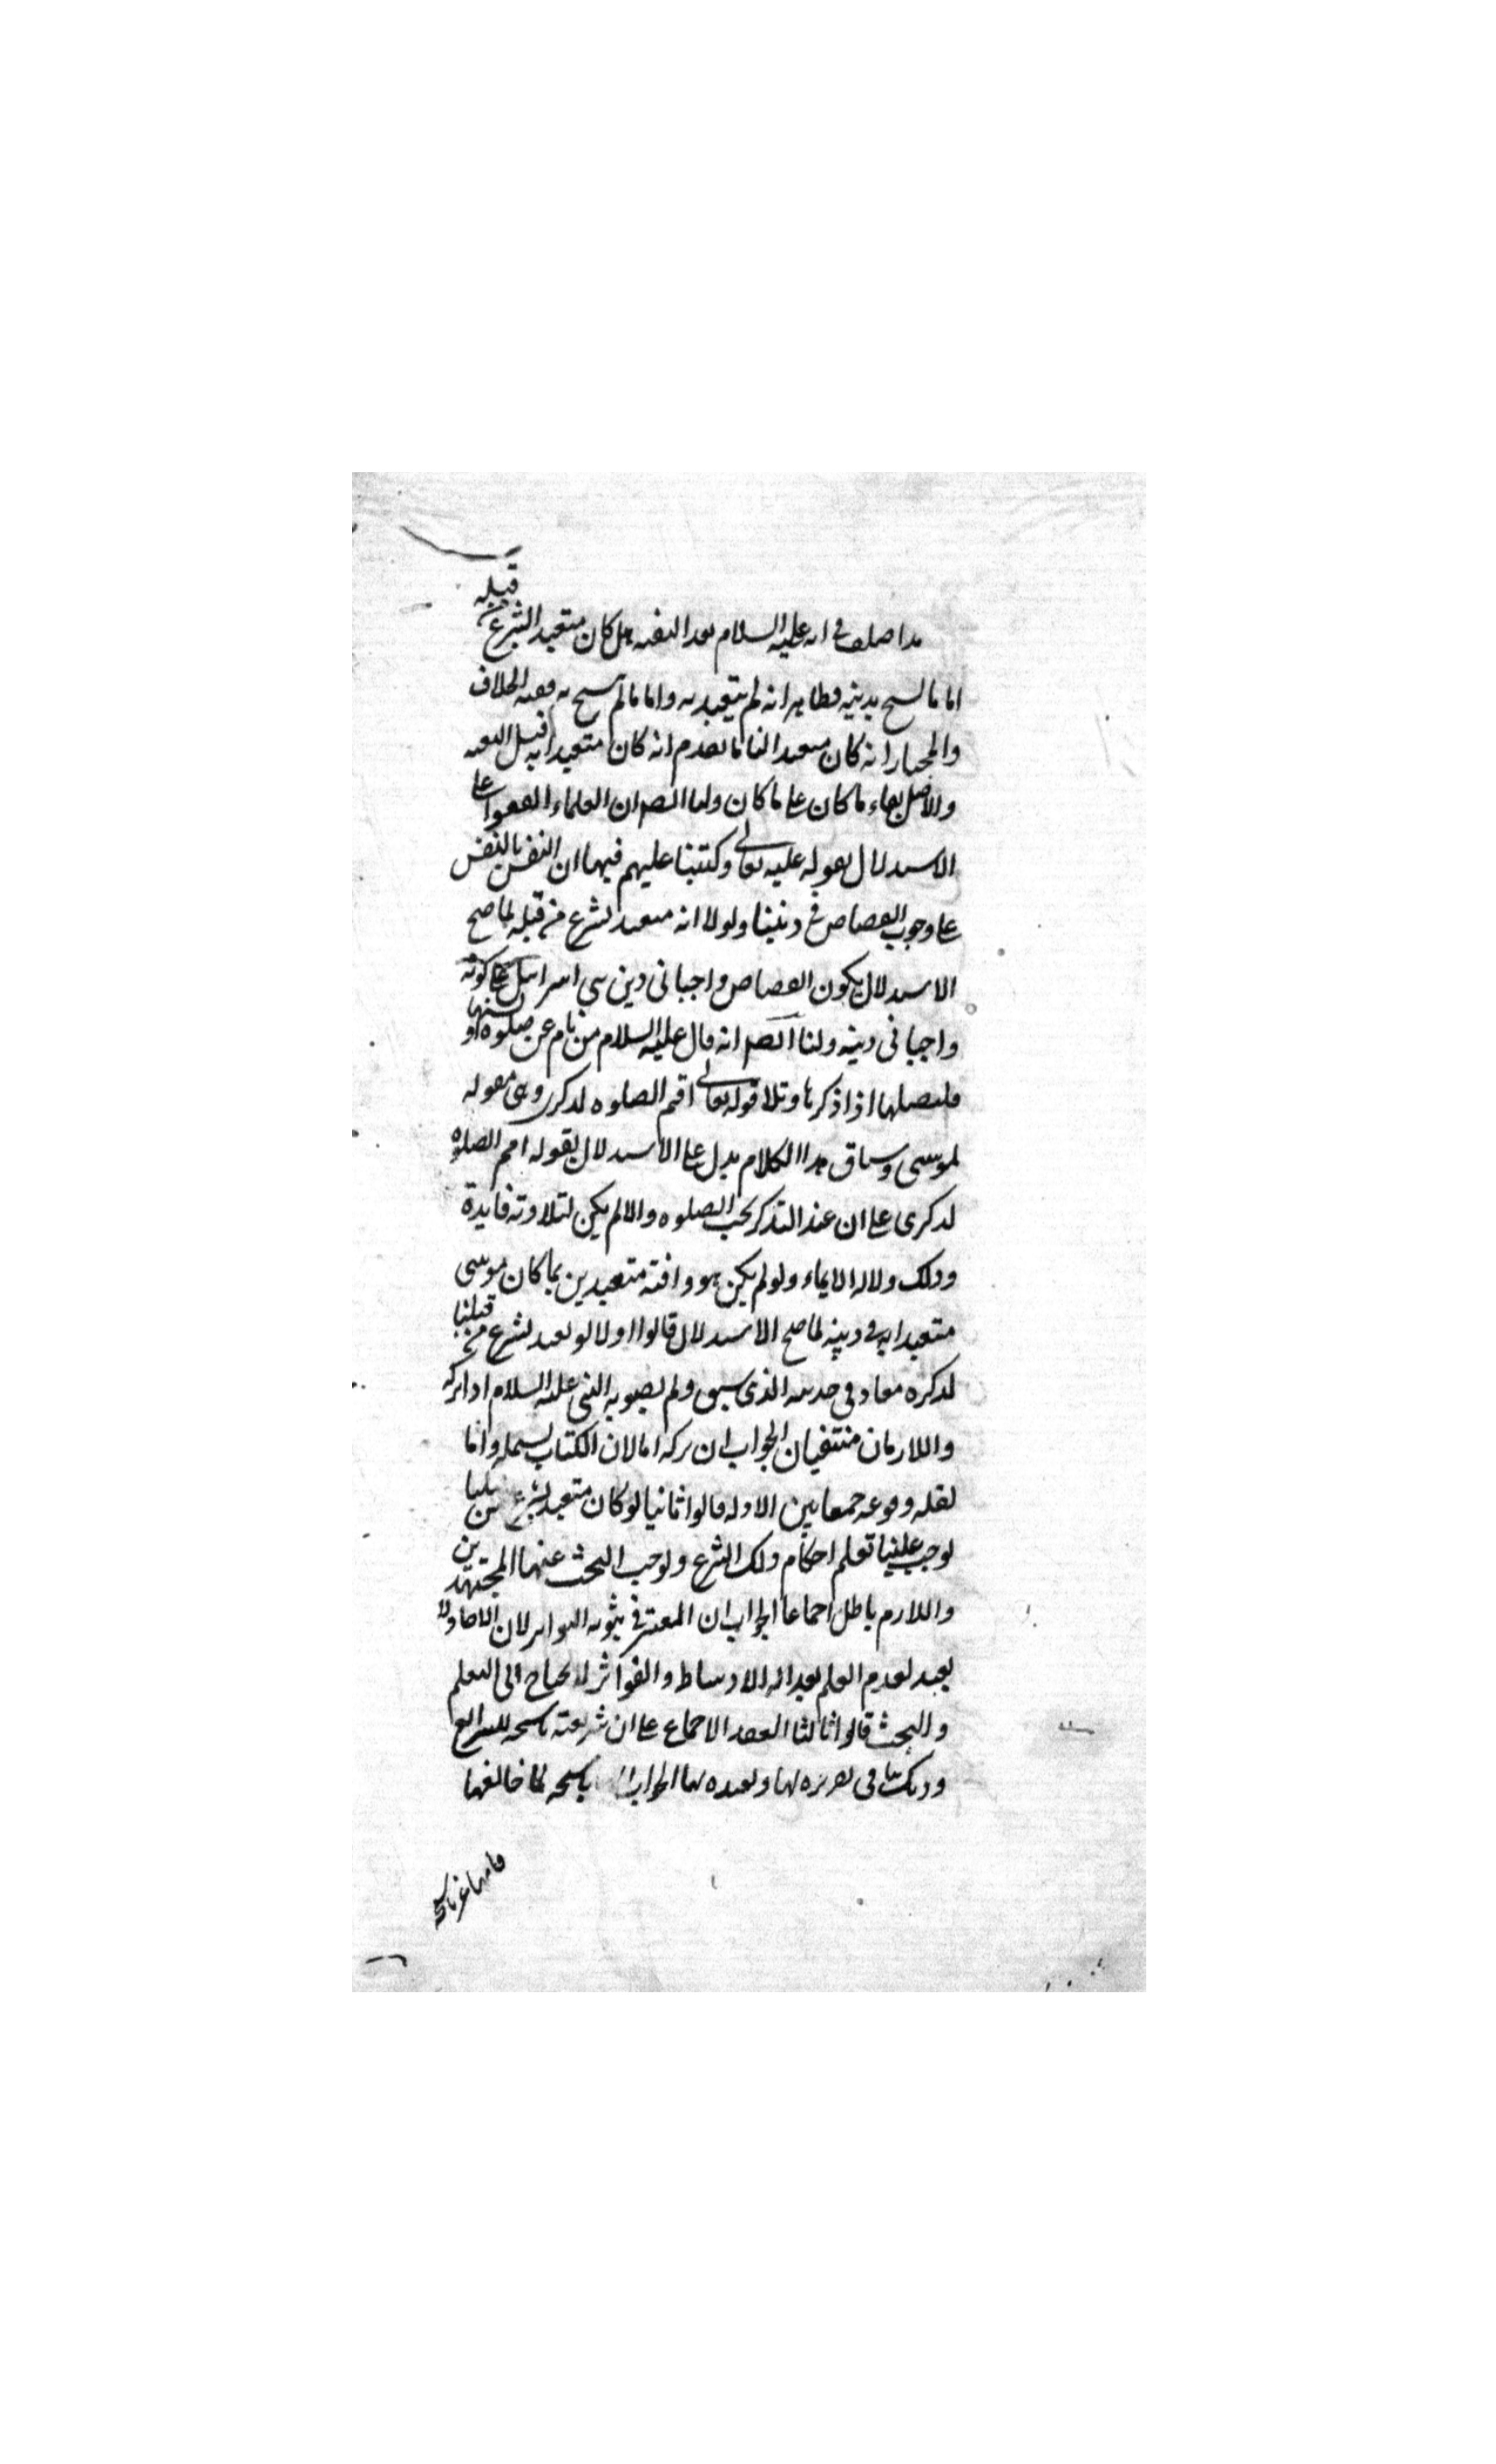 قد اختلف في انه عليه السلام بعد البعثة هل كان متعبدا بشرع من قبله
اما ما نسخ بدينه فظاهر انه لم يتعبد به واما ما لم ينسخ به ففيه الخلاف
والمختار انه كان متعبدا لنا ما تقدم انه كان متعبدا به قبل البعثة
والاصل بقاء ما كان على ما كان ولنا ايضا ان العلماء اتفقوا على
الاستدلال بقوله تعالى وكتبنا عليهم فيها ان النفس بالنفس
على وجوب القصاص في ديننا ولولا انه متعبد بشرع من قبله لما صح
الاستدلال بكون القصاص واجبا في دين بني اسرائيل على كونه
واجبا في دينه ولنا ايضا انه قال عليه السلام من نام عن صلوة او نسيها
فليصلها اذا ذكرها وتلا قوله تعالى اقم الصلوة لذكري وهي مقولة
لموسى وسياق هذا الكلام يدل على الاستدلال بقوله اقم الصلوة
لذكري على ان عند التذكر يجب الصلوة والا لم يكن لتلاوته فايدة
وذلك دلالة الايماء ولو لم يكن هو وامته متعبدين بما كان موسى
متعبدا به في دينه لما صح الاستدلال قالوا اولا لو تعبد بشرع من قبلنا
لذكره معاذ في حديثه الذي سبق ولم يصوبه النبي عليه السلام اذا تركه
واللازمان منتفيان الجواب ان تركه اما لان الكتاب يشمله واما
لقلة وقوعه جمعا بين الادلة قالوا ثانيا لو كان متعبدا بشرع من قبلنا
لوجب علينا تعلم احكام ذلك الشرع ولوجب البحث عنها المجتهدين
واللازم باطل اجماعا الجواب ان المعتبر في ثبوته التواتر لان الاحاد لا
يفيد لعدم العلم بعدالة الاوساط والمتواتر لا يحتاج الى التعلم
والبحث قالوا ثالثا انعقد الاجماع على ان شريعته ناسخة للشرايع
وذلك ينافي تقريره لها وتعبده بها الجواب ناسخة لما خالفها
فانها غير ناسخة